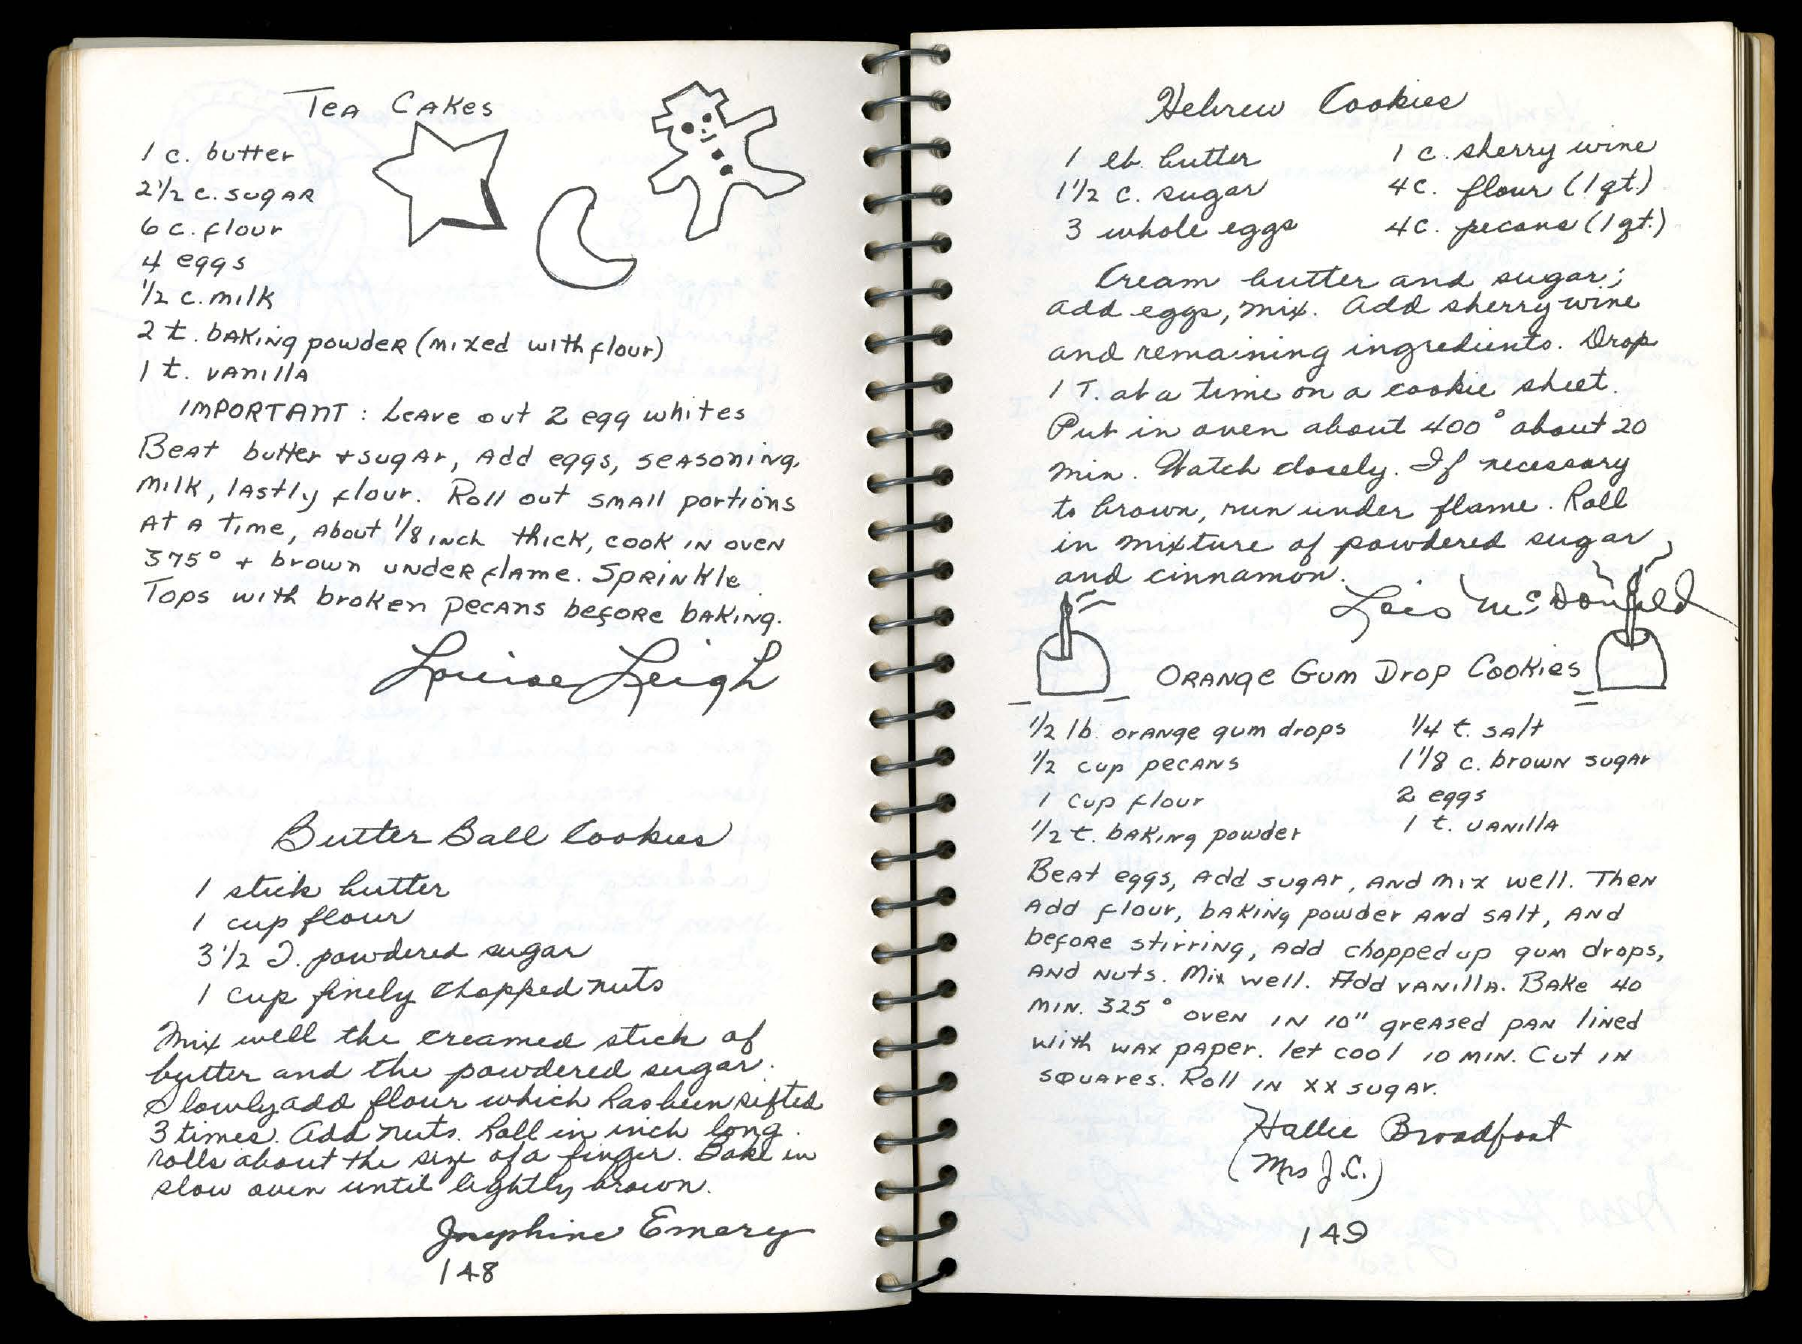 Tea Cakes
1 c. butter
2 1/2 c. sugar
6 c. flour
4 eggs
1/2 c. milk
2 t. baking powder (mixed with flour)
1 t. vanilla
IMPORTANT: Leave out 2 egg whites
Beat butter + sugar, add eggs, seasoning,
milk, lastly flour. Roll out small portions
at a time, about 1/8 inch thick, cook in oven
375° + brown under flame. Sprinkle
Tops with broken pecans before baking.
Louise Leigh
Butter Ball Cookies
1 stick butter
1 cup flour
3 1/2 T. powdered sugar
1 cup finely chopped nuts
Mix well the creamed stick of
butter and the powdered sugar.
Slowly add flour which has been sifted
3 times. Add nuts. Roll in inch long
rolls about the size of a finger. Bake in
slow oven until lightly brown.
Josephine Emery
148
Hebrew Cookies
1 lb. butter
1 1/2 c. sugar
3 whole eggs
1 c. sherry wine
4 c. flour (1 qt.)
4 c. pecans (1 qt.)
Cream butter and sugar;
add eggs, mix. Add sherry wine
and remaining ingredients. Drop
1 T. at a time on a cookie sheet.
Put in oven about 400° about 20
min. Watch closely. If necessary
to brown, run under flame. Roll
in mixture of powdered sugar
and cinnamon.
Lois McDonald
Orange Gum Drop Cookies
1/2 lb. orange gum drops
1/2 cup pecans
1 cup flour
1/2 t. baking powder
1/4 t. salt
1 1/8 c. brown sugar
2 eggs
1 t. vanilla
Beat eggs, add sugar, and mix well. Then
add flour, baking powder and salt, and
before stirring, add chopped up gum drops,
and nuts. Mix well. Add vanilla. Bake 40
min. 325° oven in 10" greased pan lined
with wax paper. let cool 10 min. Cut in
squares. Roll in xx sugar.
Hallie Broadfoot
(Mrs J.C.)
149